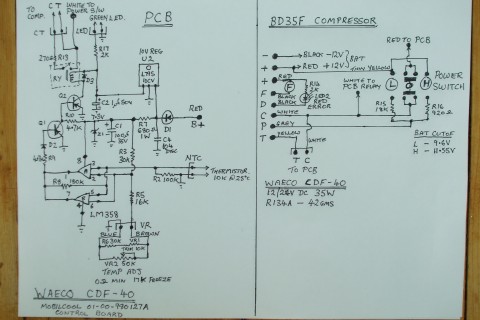 TO COMP.
WHITE TO POWER S/W
GREEN LED.
PCB
C T
C T
LED
R17
2K
10V REG
U2
LM5
10CV
270Ω R19
RY
D3
Q2
C2 1µ 50V
R10
47K
Q1
C1
100µF
35V
R7
680Ω
1W
C4
104
D1
RED
B+
R3
30K
NTC
R2 100K
THERMISTOR
10K @ 25°C
R8 150K
R5
16K
LM358
VR
BLUE
BROWN
R6 30K
VR1
TRIM 10K
VR2 50K
TEMP ADJ
0Ω MIN 17K FREEZE
WAECO CDF-40
MOBILCOOL 01-00-990127A
CONTROL BOARD
BD35F COMPRESSOR
- BLACK -12V
+ RED +12V
BAT
+ RED
F
F BLACK
D BLACK
C
P GREY
T YELLOW
WHITE
T C
TO PCB
R14
2K
LED2
RED
ERROR
RED TO PCB
THIN YELLOW
WHITE TO
PCB RELAY
L
H
POWER
SWITCH
R15
18K
R16
920Ω
BAT CUTOFF
L - 9.6V
H - 11.55V
WAECO CDF-40
12/24V DC 35W
R134A - 42GMS